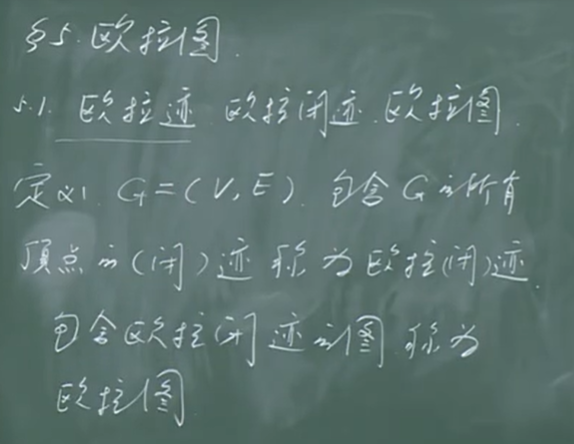 §5. 欧拉图.
5.1. 欧拉迹 欧拉闭迹. 欧拉图.
定义1. G=(V,E). 包含G的所有
顶点的(闭)迹称为欧拉(闭)迹.
包含欧拉闭迹的图称为
欧拉图